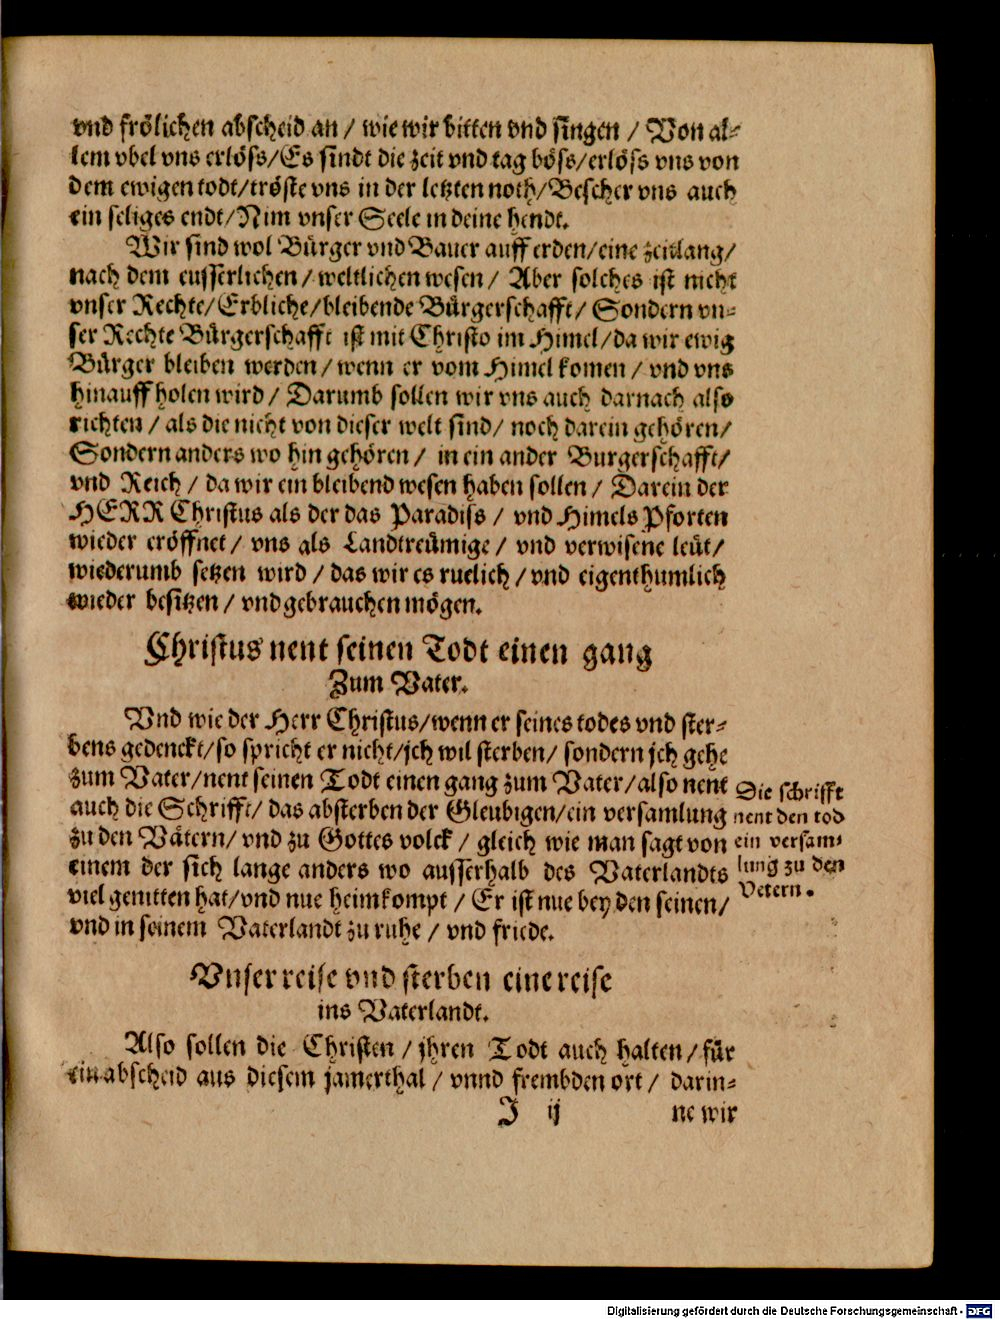 vnd frölichen abscheid an / wie wir bitten vnd singen / Von al-
lem vbel vns erlöss/Es sindt die zeit vnd tag böss/erlöss vns von
dem ewigen todt/tröste vns in der letzten noth/Bescher vns auch
ein seliges endt/Nim vnser Seele in deine hendt.
Wir sind wol Bürger vnd Bauer auff erden/eine zeitlang/
nach dem eusserlichen / weltlichen wesen / Aber solches ist nicht
vnser Rechte/Erbliche/bleibende Bürgerschafft/ Sondern vn-
ser Rechte Bürgerschafft ist mit Christo im Himel/da wir ewig
Bürger bleiben werden / wenn er vom Himel komen / vnd vns
hinauff holen wird / Darumb sollen wir vns auch darnach also
richten / als die nicht von dieser welt sind/ noch darein gehören/
Sondern anders wo hin gehören / in ein ander Burgerschafft/
vnd Reich / da wir ein bleibend wesen haben sollen / Darein der
HERR Christus als der das Paradiss / vnd Himels Pforten
wieder eröffnet / vns als Landtreümige / vnd verwisene leüt/
wiederumb setzen wird / das wir es ruelich / vnd eigenthumlich
wieder besitzen / vnd gebrauchen mögen.
Christus nent seinen Todt einen gang
Zum Vater.
Vnd wie der Herr Christus/wenn er seines todes vnd ster-
bens gedenckt/so spricht er nicht/jch wil sterben/ sondern jch gehe
zum Vater/nent seinen Todt einen gang zum Vater/also nent
auch die Schrifft/ das absterben der Gleubigen/ein versamlung
zu den Vätern/ vnd zu Gottes volck / gleich wie man sagt von
einem der sich lange anders wo ausserhalb des Vaterlandts
viel genitten hat/vnd nue heimkompt / Er ist nue bey den seinen/
vnd in seinem Vaterlandt zu ruhe / vnd friede.
Die schrifft
nent den tod
ein versam-
lung zu den
Vetern.
Vnser reise vnd sterben eine reise
ins Vaterlandt.
Also sollen die Christen / jhren Todt auch halten / für
ein abscheid aus diesem jamerthal / vnnd frembden ort / darin-
J ij
ne wir
Digitalisierung gefördert durch die Deutsche Forschungsgemeinschaft - DFG